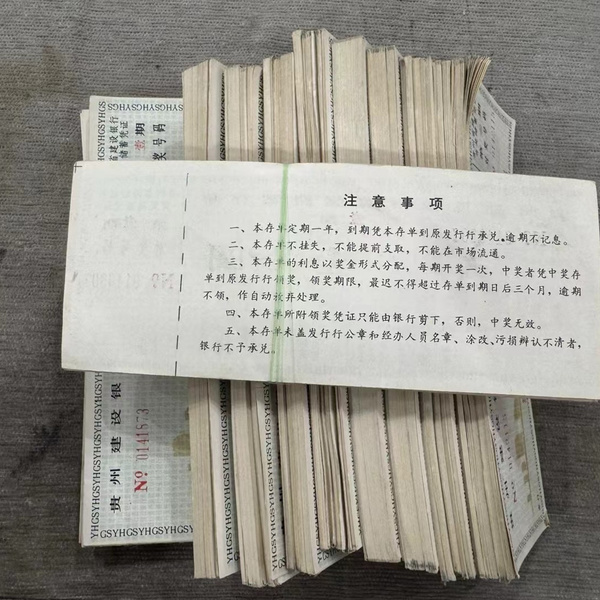 注意事项
一、本存单定期一年，到期凭本存单到原发行行承兑，逾期不记息。
二、本存单不挂失，不能提前支取，不能在市场流通。
三、本存单的利息以奖金形式分配，每期开奖一次，中奖者凭中奖存
单到原发行行领奖，领奖期限，最迟不得超过存单到期日后三个月，逾期
不领，作自动放弃处理。
四、本存单所附领奖凭证只能由银行剪下，否则，中奖无效。
五、本存单未盖发行行公章和经办人员名章、涂改、污损辨认不清者，
银行不予承兑。
省建设银行
储蓄凭证
壹期
奖号码
贵州建设银
YHGSYHGSYHGSYHGSYHGS